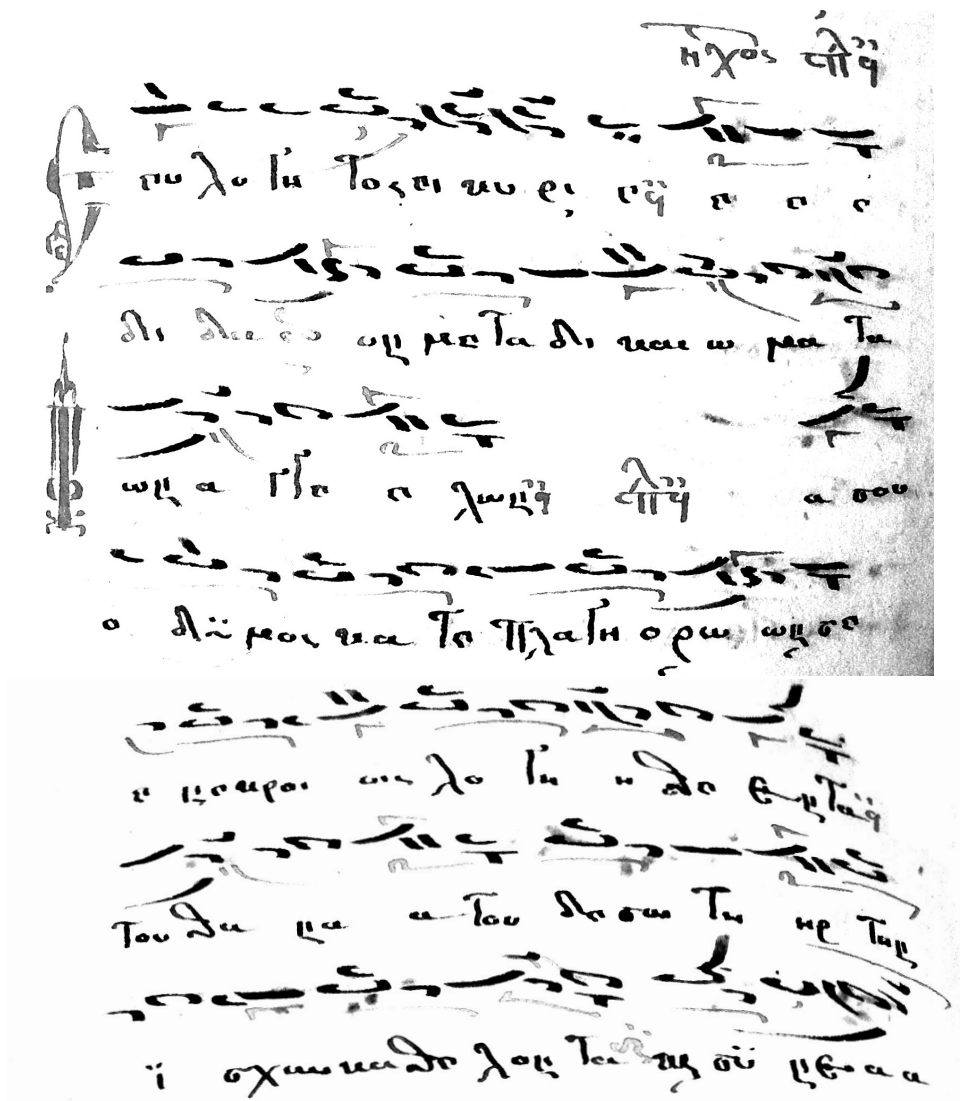 ηχος πλ α
ευ λο γη τος ει κυ ρι ε ε ε ε
δι δα ξο ον με τα δι και ω μα τα
ων α γγε ε λων πλ α α σου
ο δη μος κα τε πλα γη ο ρω ων σε
ε νεκροι οις λο γι η σθε εντα
του θα να α του δε σω τη ηρ την
ι σχυν καθε λον τα και συν ε α α